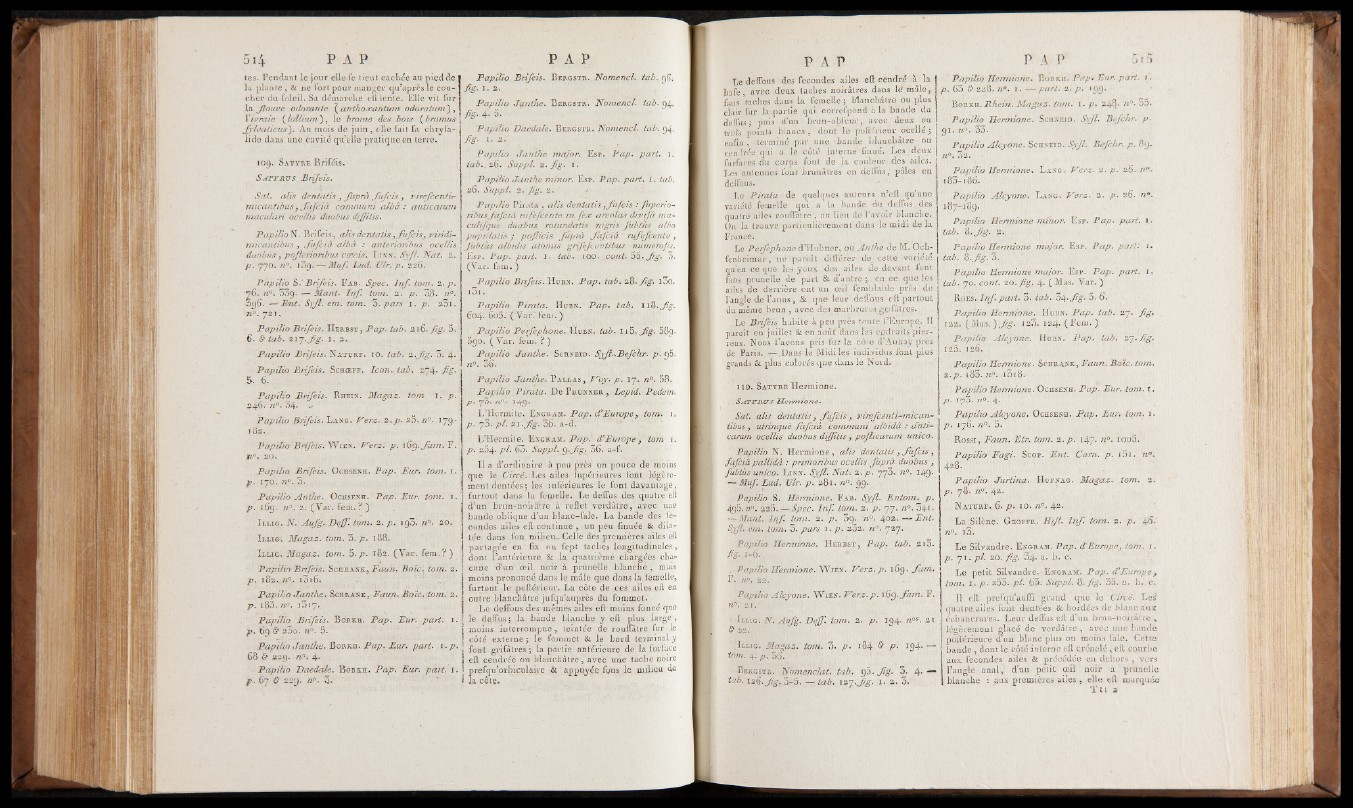 514 P A P
tes. Pendant le jour elle se tient cachée au pied de
la plante, & ne sort pour manger qu'après le cou-
cher du soleil. Sa démarche est lente. Elle vit sur
la flouve odorante (anthoxantum odoratum),
l'ivraie (lollium), le brome des bois (bromus
sylvaticus). Au mois de juin, elle fait sa chrysa-
lide dans une cavité qu'elle pratique en terre.
109. SATYRE Briséis.
SATYRUS Briseis.
Sat. alis dentatis, suprà fuscis, virescenti-
micantibus, fasciâ communi albâ : anticarum
maculari ocellis duobus dissitis.
Papilio N. Briseis, alis dentatis, fuscis, viridi-
micantibus, fasciâ albâ : anterioribus ocellis
duobus, posterioribus cœcis. LINN. Syst. Nat. 2.
p. 770. nº. 139. — Mus. Lud. Ulr. p. 226.
Papilio S. Briseis. FAB. Spec. Inf. tom. 2. p.
76. nº. 339. — Mant. Inf. tom. 2. p. 38. nº.
396. — Ent. Syst. em. tom. 3. pars 1. p. 231.
nº. 721.
Papilio Briseis. HERBST, Pap. tab. 216. fig. 5.
6. & tab. 217. fig. 1. 2.
Papilio Briseis. NATURF. 10. tab. 2. fig. 3. 4.
Papilio Briseis. SCHŒFF. Icon. tab. 274. fig.
5. 6.
Papilio Briseis. RHEIN. Magaz. tom 1. p.
246. nº. 34.
Papilio Briseis. LANG. Verz. 2. p. 25. nº. 179-
182.
Papilio Briseis. WIEN. Verz. p. 169. fam. F.
nº. 20.
Papilio Briseis. OCHSENH. Pap. Eur. tom. 1.
p. 170. nº. 3.
Papilio Anthe. OCHSENH. Pap. Eur. tom. 1.
p. 169. nº. 2. (Var. fem. ?)
ILLIG. N. Aufg. Dess. tom. 2. p. 193. nº. 20.
ILLIG. Magaz. tom. 3. p. 188.
ILLIG. Magaz. tom. 5. p. 182. (Var. fem. ?)
Papilio Briseis. SCHRANK, Faun. Boïc. tom. 2.
p. 182. nº. 1316.
Papilio Janthe. SCHRANK, Faun. Boïc. tom. 2.
p. 183. nº. 1317.
Papilio Briseis. BORKH. Pap. Eur. part. 1.
p. 69 & 230. nº. 5.
Papilio Janthe. BORKH. Pap. Eur. part. 1. p.
68 & 229. nº. 4.
Papilio Daedale. BORKH. Pap. Eur. part. 1.
p. 67 & 229. nº. 3.
P A P
Papilio Briseis. BERGSTR. Nomencl. tab. 98.
fig. 1. 2.
Papilio Janthe. BERGSTR. Nomencl. tab. 94.
fig. 4. 5.
Papilio Daedale. BERGSTR. Nomencl. tab. 94.
fig. 1. 2.
Papilio Janthe major. ESP. Pap. part. 1.
tab. 26. Suppl. 2. fig. 1.
Papilio Janthe minor. ESP. Pap. part. 1. tab.
26. Suppl. 2. fig. 2.
Papilio Pirata, alis dentatis, fuscis : superio-
ribus fasciâ rufescente in sex areolas divisâ ma-
culisque duabus rotundatis nigris subtùs albo
pupillatis ; posticis suprà fasciâ rufescente,
subtùs albidis atomis griseſcentibus numerosis.
ESP. Pap. part. 1. tab. 100. cont. 55. fig. 3.
(Var. fem.)
Papilio Briseis. HUBN. Pap. tab. 28. fig. 130.
131.
Papilio Pirata. HUBN. Pap. tab. 118. fig.
604. 605. (Var. fem.)
Papilio Persephone. HUBN. tab. 115. fig. 589.
590. (Var. fem. ?)
Papilio Janthe. SCHNEID. Syst. Beschr. p. 95.
nº. 36.
Papilio Janthe. PALLAS, Voy. p. 17. nº. 58.
Papilio Pirata. DE PRUNNER, Lepid. Pedem.
p. 75. nº. 149.
L'Hermite. ENGRAM. Pap. d'Europe, tom. 1.
p. 73. pl. 21. fig. 36. a-d.
L'Hermite. ENGRAM. Pap. d'Europe, tom 1.
p. 254. pl. 63. Suppl. 9. fig. 36. a-f.
Il a d'ordinaire à peu près un pouce de moins
que le Circé. Les ailes supérieures sont légère-
ment dentées ; les inférieures le sont davantage,
surtout dans la femelle. Le dessus des quatre est
d'un brun-noirâtre à reflet verdâtre, avec une
bande oblique d'un blanc-sale. La bande des se-
condes ailes est continue, un peu sinuée & dila-
tée dans son milieu. Celle des premières ailes est
partagée en six ou sept taches longitudinales,
dont l'antérieure & la quatrième chargées cha-
cune d'un œil noir à prunelle blanche, mais
moins prononcé dans le mâle que dans la femelle,
surtout le postérieur. La côte de ces ailes est en
outre blanchâtre jusqu'auprès du sommet.
Le dessous des mêmes ailes est moins foncé que
le dessus ; la bande blanche y est plus large,
moins interrompue, teintée de roussâtre sur le
côté externe ; le sommet & le bord terminal y
sont grisâtres ; la partie antérieure de la surface
est cendrée ou blanchâtre, avec une tache noire
presqu'orbiculaire & appuyée sous le milieu de
la côte.
P A P
Le dessous des secondes ailes est cendré à la
base, avec deux taches noirâtres dans le mâle,
sans taches dans la femelle ; blanchâtre ou plus
clair sur la partie qui correspond à la bande du
dessus ; puis d'un brun-obscur, avec deux ou
trois points blancs, dont le postérieur ocellé ;
enfin, terminé par une bande blanchâtre ou
cendrée qui a le côté interne sinué. Les deux
surfaces du corps sont de la couleur des ailes.
Les antennes sont brunâtres en dessus, pâles en
dessous.
Le Pirata de quelques auteurs n'est qu'une
variété femelle qui a la bande du dessus des
quatre ailes roussâtre, au lieu de l'avoir blanche.
On la trouve particulièrement dans le midi de la
France.
Le Persephone d'Hubner, ou Anthe de M. Och-
senheimer, ne paroît différer de cette variété
qu'en ce que les yeux des ailes de devant sont
sans prunelle de part & d'autre ; en ce que les
ailes de derrière ont un œil semblable près de
l'angle de l'anus, & que leur dessous est partout
du même brun, avec des marbrures grisâtres.
Le Briseis habite à peu près toute l'Europe. Il
paroît en juillet & en août dans les endroits pier-
reux. Nous l'avons pris sur la côte d'Aunay près
de Paris. — Dans le Midi les individus sont plus
grands & plus colorés que dans le Nord.
110. SATYRE Hermione.
SATYRUS Hermione.
Sat. alis dentatis, fuscis, virescenti-mican-
tibus, utrinquè fasciâ communi albidâ : anti-
carum ocellis duobus dissitis, posticarum unico.
Papilio N. Hermione, alis dentatis, fuscis,
fasciâ pallidâ : primoribus ocellis suprà duobus,
subtùs unico. LINN. Syst. Nat. 2. p. 773. nº. 149.
— Mus. Lud. Ulr. p. 281. nº. 99.
Papilio S. Hermione. FAB. Syst. Entom. p.
495. nº. 225. — Spec. Inf. tom. 2. p. 77. nº. 341.
— Mant. Inf. tom. 2. p. 39. nº. 402. — Ent.
Syst. em. tom. 3. pars 1. p. 232. nº. 727.
Papilio Hermione. HERBST, Pap. tab. 213.
fig. 1-6.
Papilio Hermione. WIEN. Verz. p. 169. fam.
F. nº. 22.
Papilio Alcyone. WIEN. Verz. p. 169. fam. F.
nº. 21.
ILLIG. N. Aufg. Dess. tom. 2. p. 194. nos. 21
& 22.
ILLIG. Magaz. tom. 3. p. 184 & p. 194. —
tom. 4. p. 36.
BERGSTR. Nomenclat. tab. 93. fig. 3. 4. —
tab. 126. fig. 3-5. — tab. 127. fig. 1. 2. 3.
P A P 515
Papilio Hermione. BORKH. Pap. Eur. part. 1.
p. 65 & 228. nº. 1. — part. 2. p. 199.
BORKH. Rhein. Magaz. tom. 1. p. 245. nº. 33.
Papilio Hermione. SCHNEID. Syst. Beschr. p.
91. nº. 33.
Papilio Alcyone. SCHNEID. Syst. Beschr. p. 89.
nº. 32.
Papilio Hermione. LANG. Verz. 2. p. 26. nº.
183-186.
Papilio Alcyone. LANG. Verz. 2. p. 26. nº.
187-189.
Papilio Hermione minor. ESP. Pap. part. 1.
tab. 8. fig. 2.
Papilio Hermione major. ESP. Pap. part. 1.
tab. 8. fig. 3.
Papilio Hermione major. ESP. Pap. part. 1.
tab. 70. cont. 20. fig. 4. (Mas. Var.)
ROES. Inf. part. 3. tab. 34. fig. 5. 6.
Papilio Hermione. HUBN. Pap. tab. 27. fig.
122. (Mas.), fig. 123. 124. (Fem.)
Papilio Alcyone. HUBN. Pap. tab. 27. fig.
125. 126.
Papilio Hermione. SCHRANK, Faun. Boïc. tom.
2. p. 183. nº. 1318.
Papilio Hermione. OCHSENH. Pap. Eur. tom. 1.
p. 173. nº. 4.
Papilio Alcyone. OCHSENH. Pap. Eur. tom. 1.
p. 176. nº. 5.
ROSSI, Faun. Etr. tom. 2. p. 147. nº. 1003.
Papilio Fagi. SCOP. Ent. Carn. p. 151. nº.
428.
Papilio Jurtina. HUFNAG. Magaz. tom. 2.
p. 78. nº. 42.
NATURF. 6. p. 10. nº. 42.
La Silène. GEOFFR. Hist. Inf. tom. 2. p. 46.
nº. 13.
Le Silvandre. ENGRAM. Pap. d'Europe, tom. 1.
p. 71. pl. 20. fig. 34. a. b. c.
Le petit Silvandre. ENGRAM. Pap. d'Europe,
tom. 1. p. 253. pl. 63. Suppl. 8. fig. 35. a. b. c.
Il est presqu'aussi grand que le Circé. Les
quatre ailes sont dentées & bordées de blanc aux
échancrures. Leur dessus est d'un brun-noirâtre,
légèrement glacé de verdâtre, avec une bande
postérieure d'un blanc plus ou moins sale. Cette
bande, dont le côté interne est crénelé, est courbe
aux secondes ailes & précédée en dehors, vers
l'angle anal, d'un petit œil noir à prunelle
blanche : aux premières ailes, elle est marquée
Ttt 2